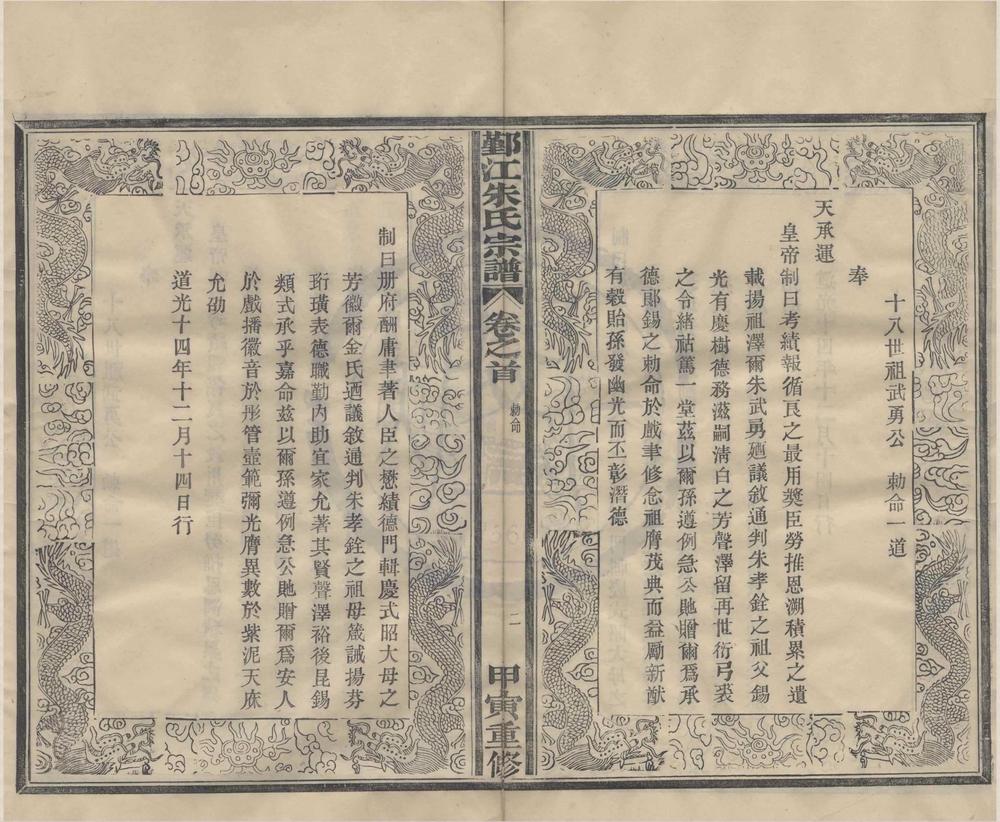 十八世祖武勇公　勅命一道
奉
天承運
皇帝制曰考績報循良之最用獎臣勞推恩溯積累之遺
載揚祖澤爾朱武勇廼議敘通判朱孝銓之祖父錫
光有慶樹德務滋嗣清白之芳聲澤留再世衍弓裘
之令緒祜篤一堂茲以爾孫遵例急公貤贈爾爲承
德郎錫之勅命於戲聿修念祖膺茂典而益勵新猷
有穀貽孫發幽光而丕彰潛德
鄞江朱氏宗譜
卷之首
勅命
二
甲寅重修
制曰册府酬庸聿著人臣之懋績德門輯慶式昭大母之
芳徽爾金氏迺議敘通判朱孝銓之祖母箴誡揚芬
珩璜表德職勤內助宜家允著其賢聲澤裕後昆錫
類式承乎嘉命茲以爾孫遵例急公貤贈爾爲安人
於戲播徽音於彤管壺範彌光膺異數於紫泥天庥
允劭
道光十四年十二月十四日行